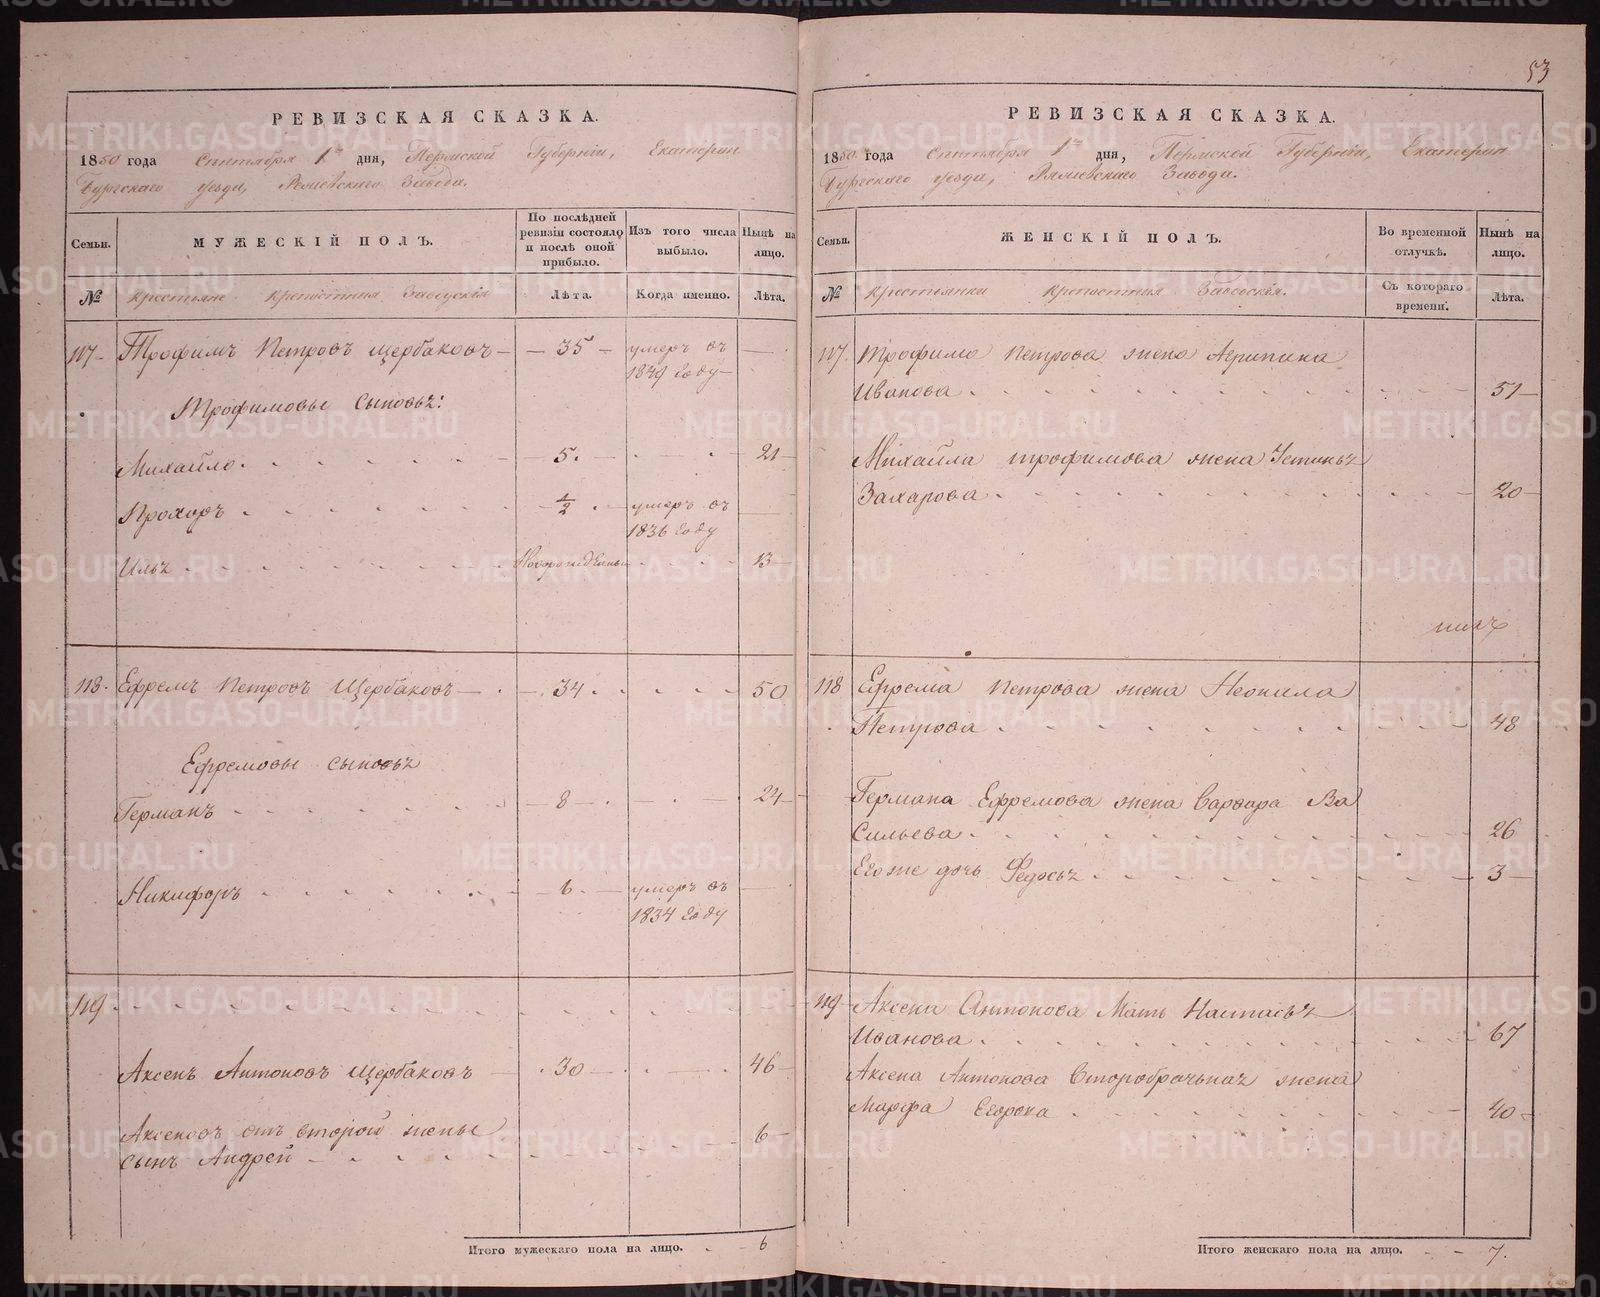 53
РЕВИЗСКАЯ СКАЗКА.
1850 года Сентября 1го дня, Пермской Губерніи, Екатерин
Бургскаго уезда, Завода.
Семьи. МУЖЕСКІЙ ПОЛЪ. По послѣдней ревизіи состояло и послѣ оной прибыло. Изъ того числа выбыло. Нынѣ на лицо.
№ Крестьяне крепостныя Заводскія Лѣта. Когда именно. Лѣта.
117 Трофимъ Петровъ Щербаковъ 35 умеръ въ
1849 году
Трофимовы сыновьѣ:
Михайло 5 21
Прохоръ 1/2 умеръ въ
1836 году
Ильѣ Новорожденный 13
118. Ефремъ Петровъ Щербаковъ 34 50
Ефремовы сыновьѣ
Германъ 8 24
Никифоръ 6 умеръ въ
1834 году
119
Аксенъ Антоновъ Щербаковъ 30 46
Аксеновъ отъ второй жены
сынъ Андрей 6
Итого мужескаго пола на лицо. 6
РЕВИЗСКАЯ СКАЗКА.
1850 года Сентября 1го дня, Пермской Губерніи, Екатерин
Бургскаго уезда, Завода.
Семьи. ЖЕНСКІЙ ПОЛЪ. Во временной отлучкѣ. Нынѣ на лицо.
№ Крестьянки крепостныя Заводскія. Съ котораго времени. Лѣта.
117. Трофима Петрова жена Агрипина
Иванова 51
Михайла трофимова жена Устиньѣ
Захарова 20
118 Ефрема Петрова жена Неонила
Петрова 48
Германа Ефремова жена Варвара Ва
сильева 26
Его же дочь Федосьѣ 3
119 Аксена Антонова Мать Настасьѣ
Иванова 67
Аксена Антонова Второбрачьнаѣ жена
Марфа Егорова 40
Итого женскаго пола на лицо. 7.
METRIKI.GASO-URAL.RU